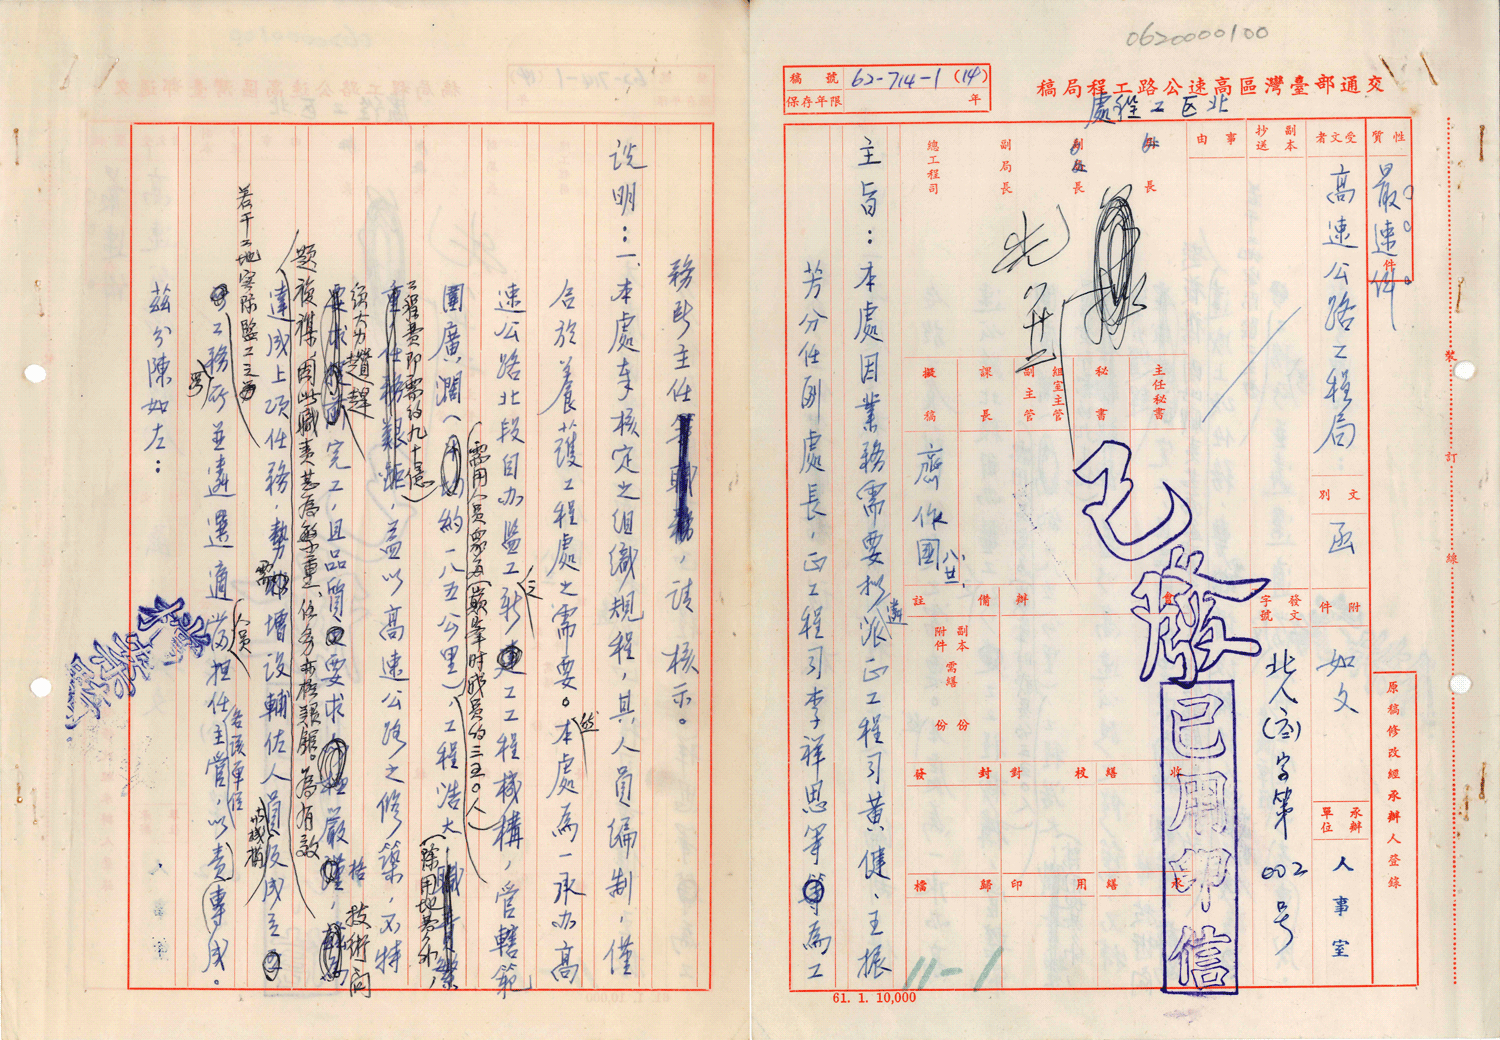 0620000100
稿號 62-714-1(14)
保存年限 年
交通部臺灣區高速公路工程局稿
北区工程處
性質 最速件
受文者 高速公路工程局
副本抄送
事由
文別 函
附件 如文
發文字號 北人(密)字第002号
承辦單位 人事室
原稿修改經承辦人登錄
處長
副處長
副局長
總工程司
主任秘書
秘書
組室主管
副主管
課長
擬稿 齊作國 八.廿
辦
備註
副本附件 需繕 份 份
收
繕
校
對
封
發
用
印
歸
檔
已發
已用印信
主旨：本處因業務需要擬遴派正工程司黃健、王振
芳分任副處長，正工程司李祥思等為工
11-1
61. 1. 10,000
裝
訂
線
務所主任，請核示。
說明：一、本處奉核定之組織規程，其人員編制，僅
合於養護工程處之需要。然本處為一承办高
速公路北段自办監工之新建工程機構，管轄範
圍廣濶（約一八五公里），工程浩大（除用地費外，
工程費即需約九十億）
需用人員眾多（巔峯時職員約三五〇人）
重任務艱距，盖以高速公路之修築，不特
須大力趲趕完工，且品質要求嚴格，技術問
題複襍，因此職責甚為繁重，任务亦極艱鉅。為有效
達成上項任務，勢需增設輔佐人員及成立
若干工地实际監工之
工務所並遴選適當人員担任各該單位主管，以責專成。
茲分陳如左：